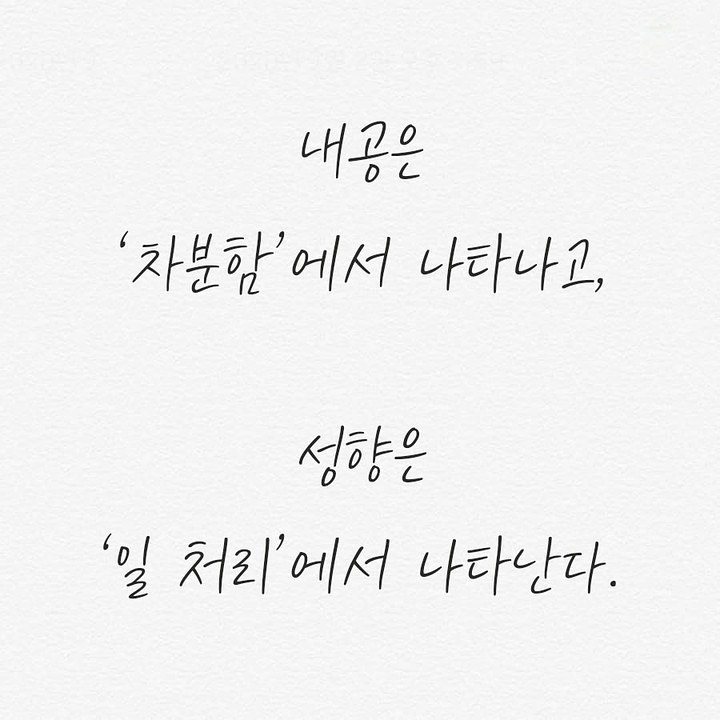 내공은
‘차분함’에서 나타나고,
성향은
‘일 처리’에서 나타난다.